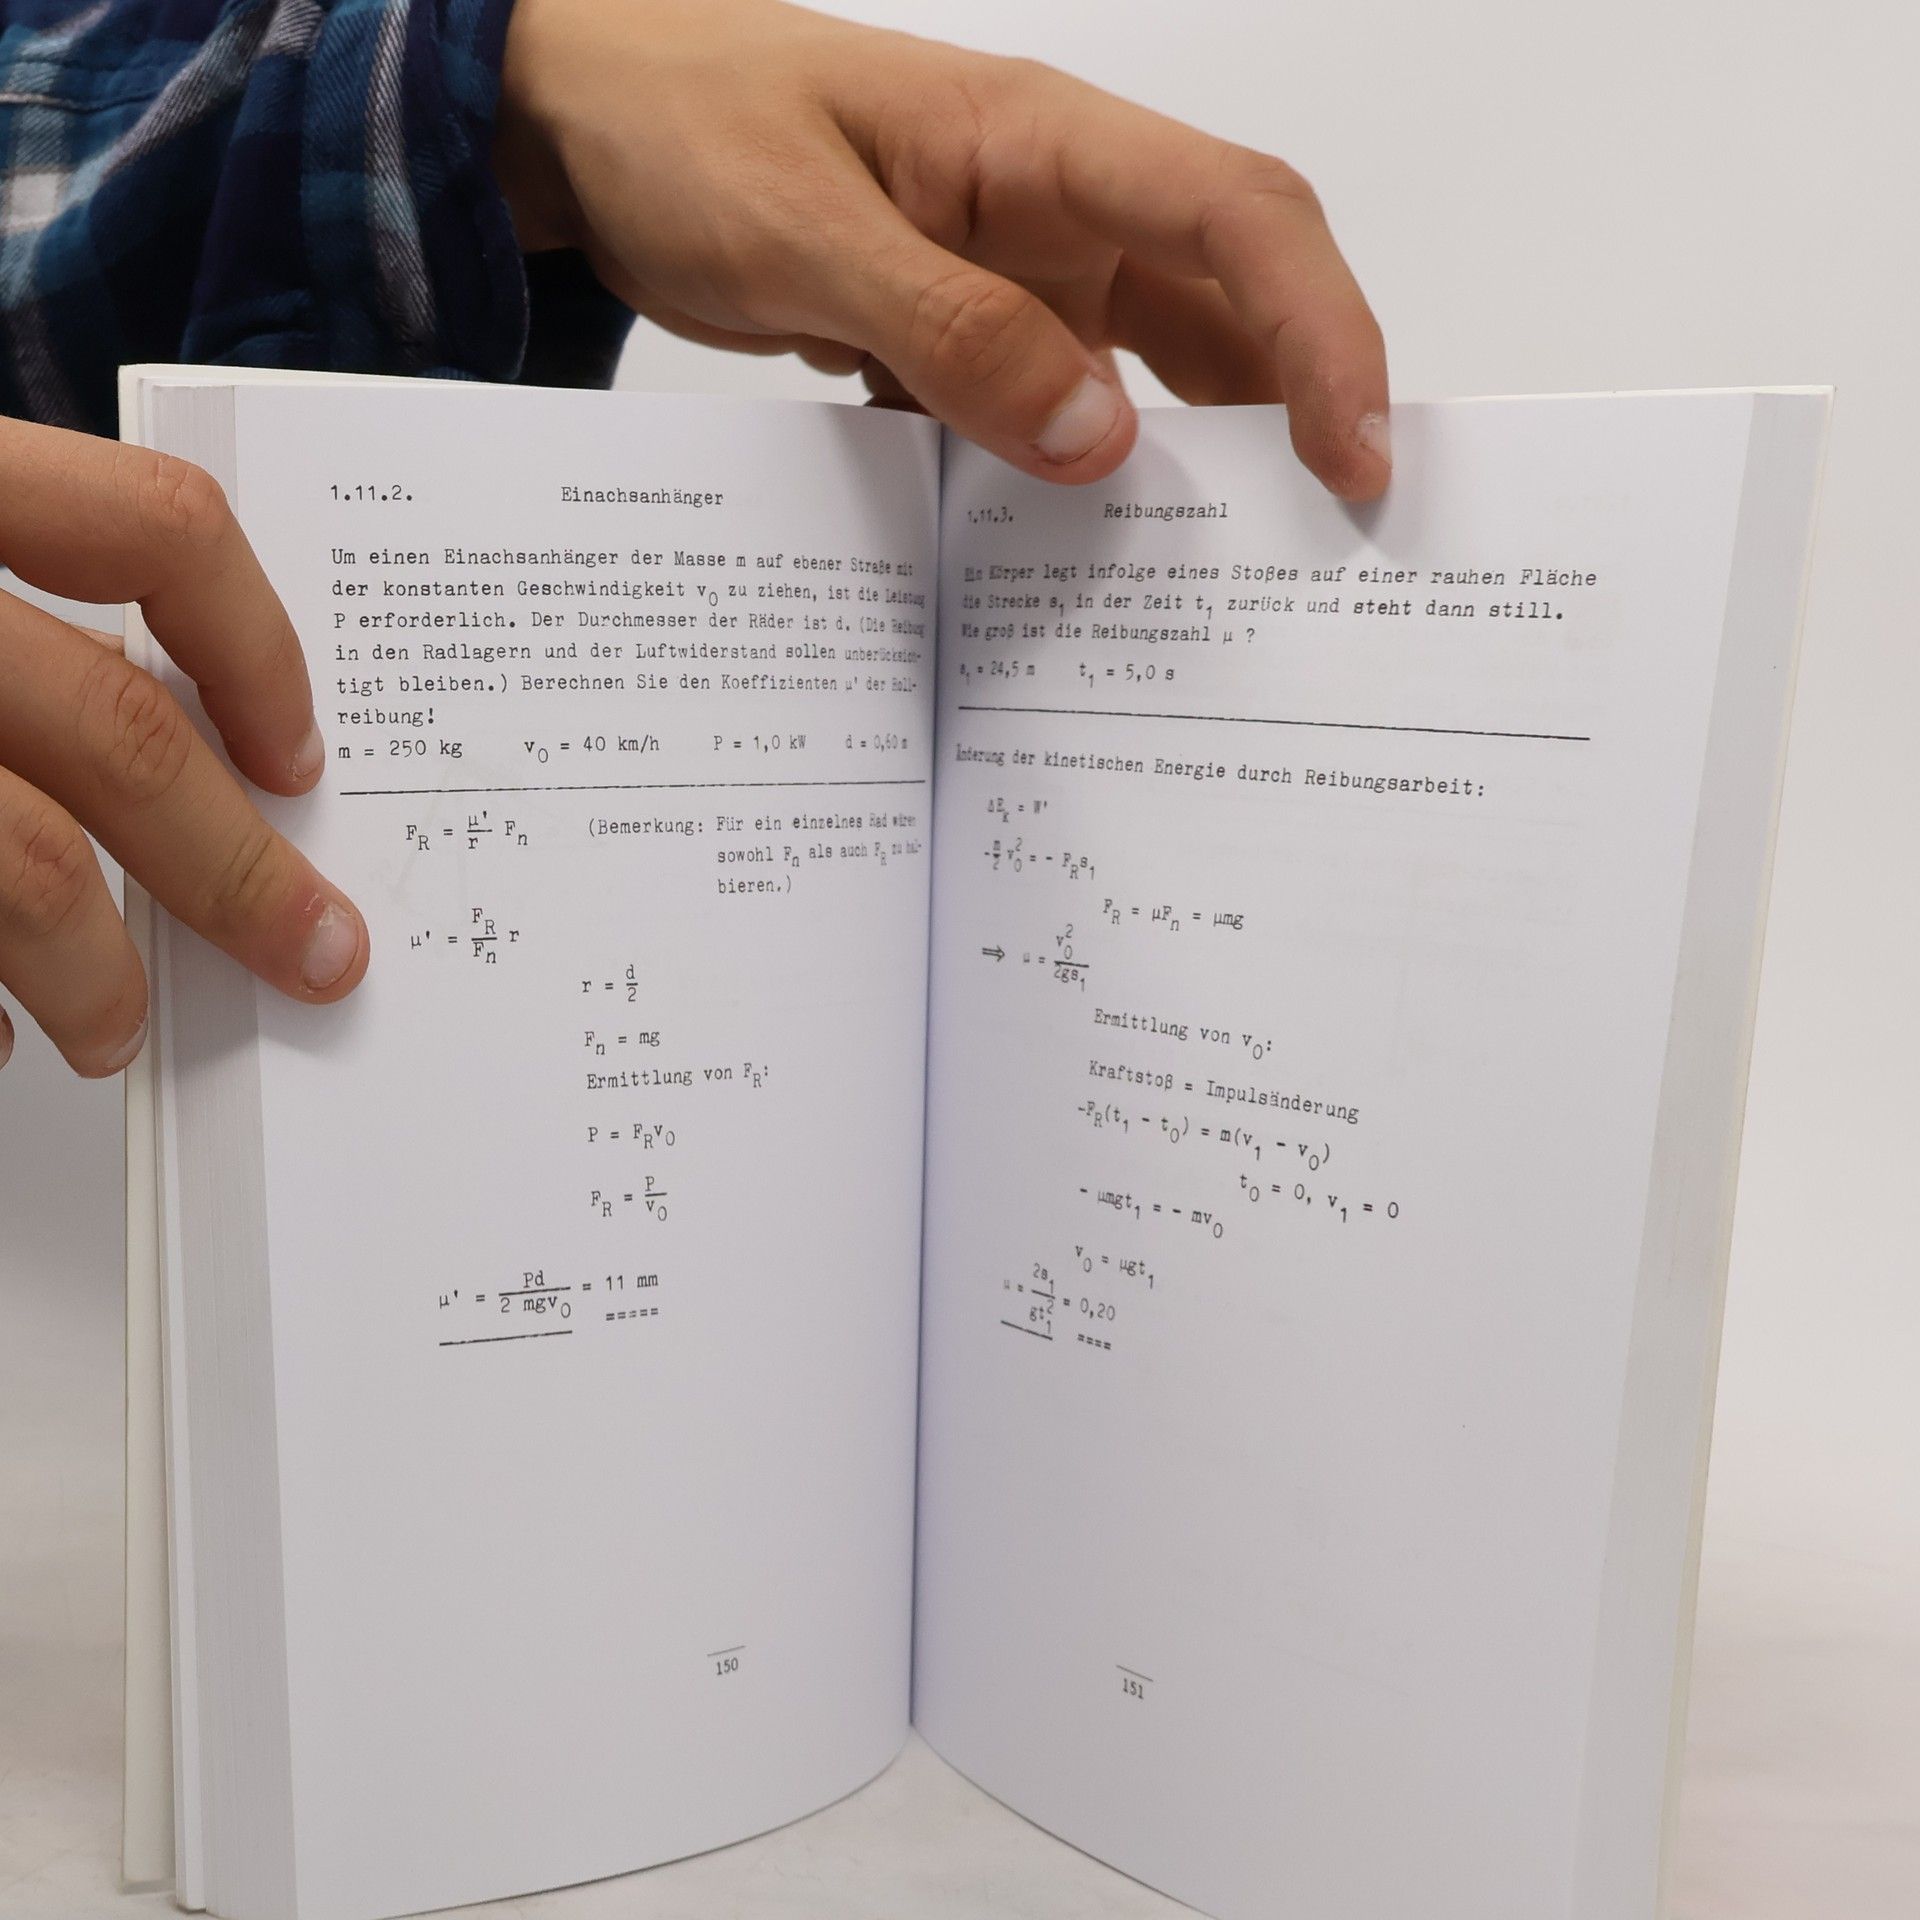 1.11.2. Einachsanhänger
Um einen Einachsanhänger der Masse m auf ebener Straße mit
der konstanten Geschwindigkeit v₀ zu ziehen, ist die Leistung
P erforderlich. Der Durchmesser der Räder ist d. (Die Reibung
in den Radlagern und der Luftwiderstand sollen unberücksich-
tigt bleiben.) Berechnen Sie den Koeffizienten μ' der Roll-
reibung!
m = 250 kg v₀ = 40 km/h P = 1,0 kW d = 0,60 m
F_R = μ'/r F_n (Bemerkung: Für ein einzelnes Rad wären
sowohl F_n als auch F_R zu hal-
bieren.)
μ' = F_R/F_n r
r = d/2
F_n = mg
Ermittlung von F_R:
P = F_R v₀
F_R = P/v₀
μ' = Pd/2 mgv₀ = 11 mm
=====
150
1.11.3. Reibungszahl
Ein Körper legt infolge eines Stoßes auf einer rauhen Fläche
die Strecke s₁ in der Zeit t₁ zurück und steht dann still.
Wie groß ist die Reibungszahl μ ?
s₁ = 24,5 m t₁ = 5,0 s
Änderung der kinetischen Energie durch Reibungsarbeit:
ΔE_k = W'
-m/2 v₀² = - F_R s₁
F_R = μF_n = μmg
⇒ μ = v₀²/2gs₁
Ermittlung von v₀:
Kraftstoß = Impulsänderung
-F_R(t₁ - t₀) = m(v₁ - v₀)
t₀ = 0, v₁ = 0
- μmgt₁ = - mv₀
v₀ = μgt₁
μ = 2s₁/gt₁² = 0,20
====
151